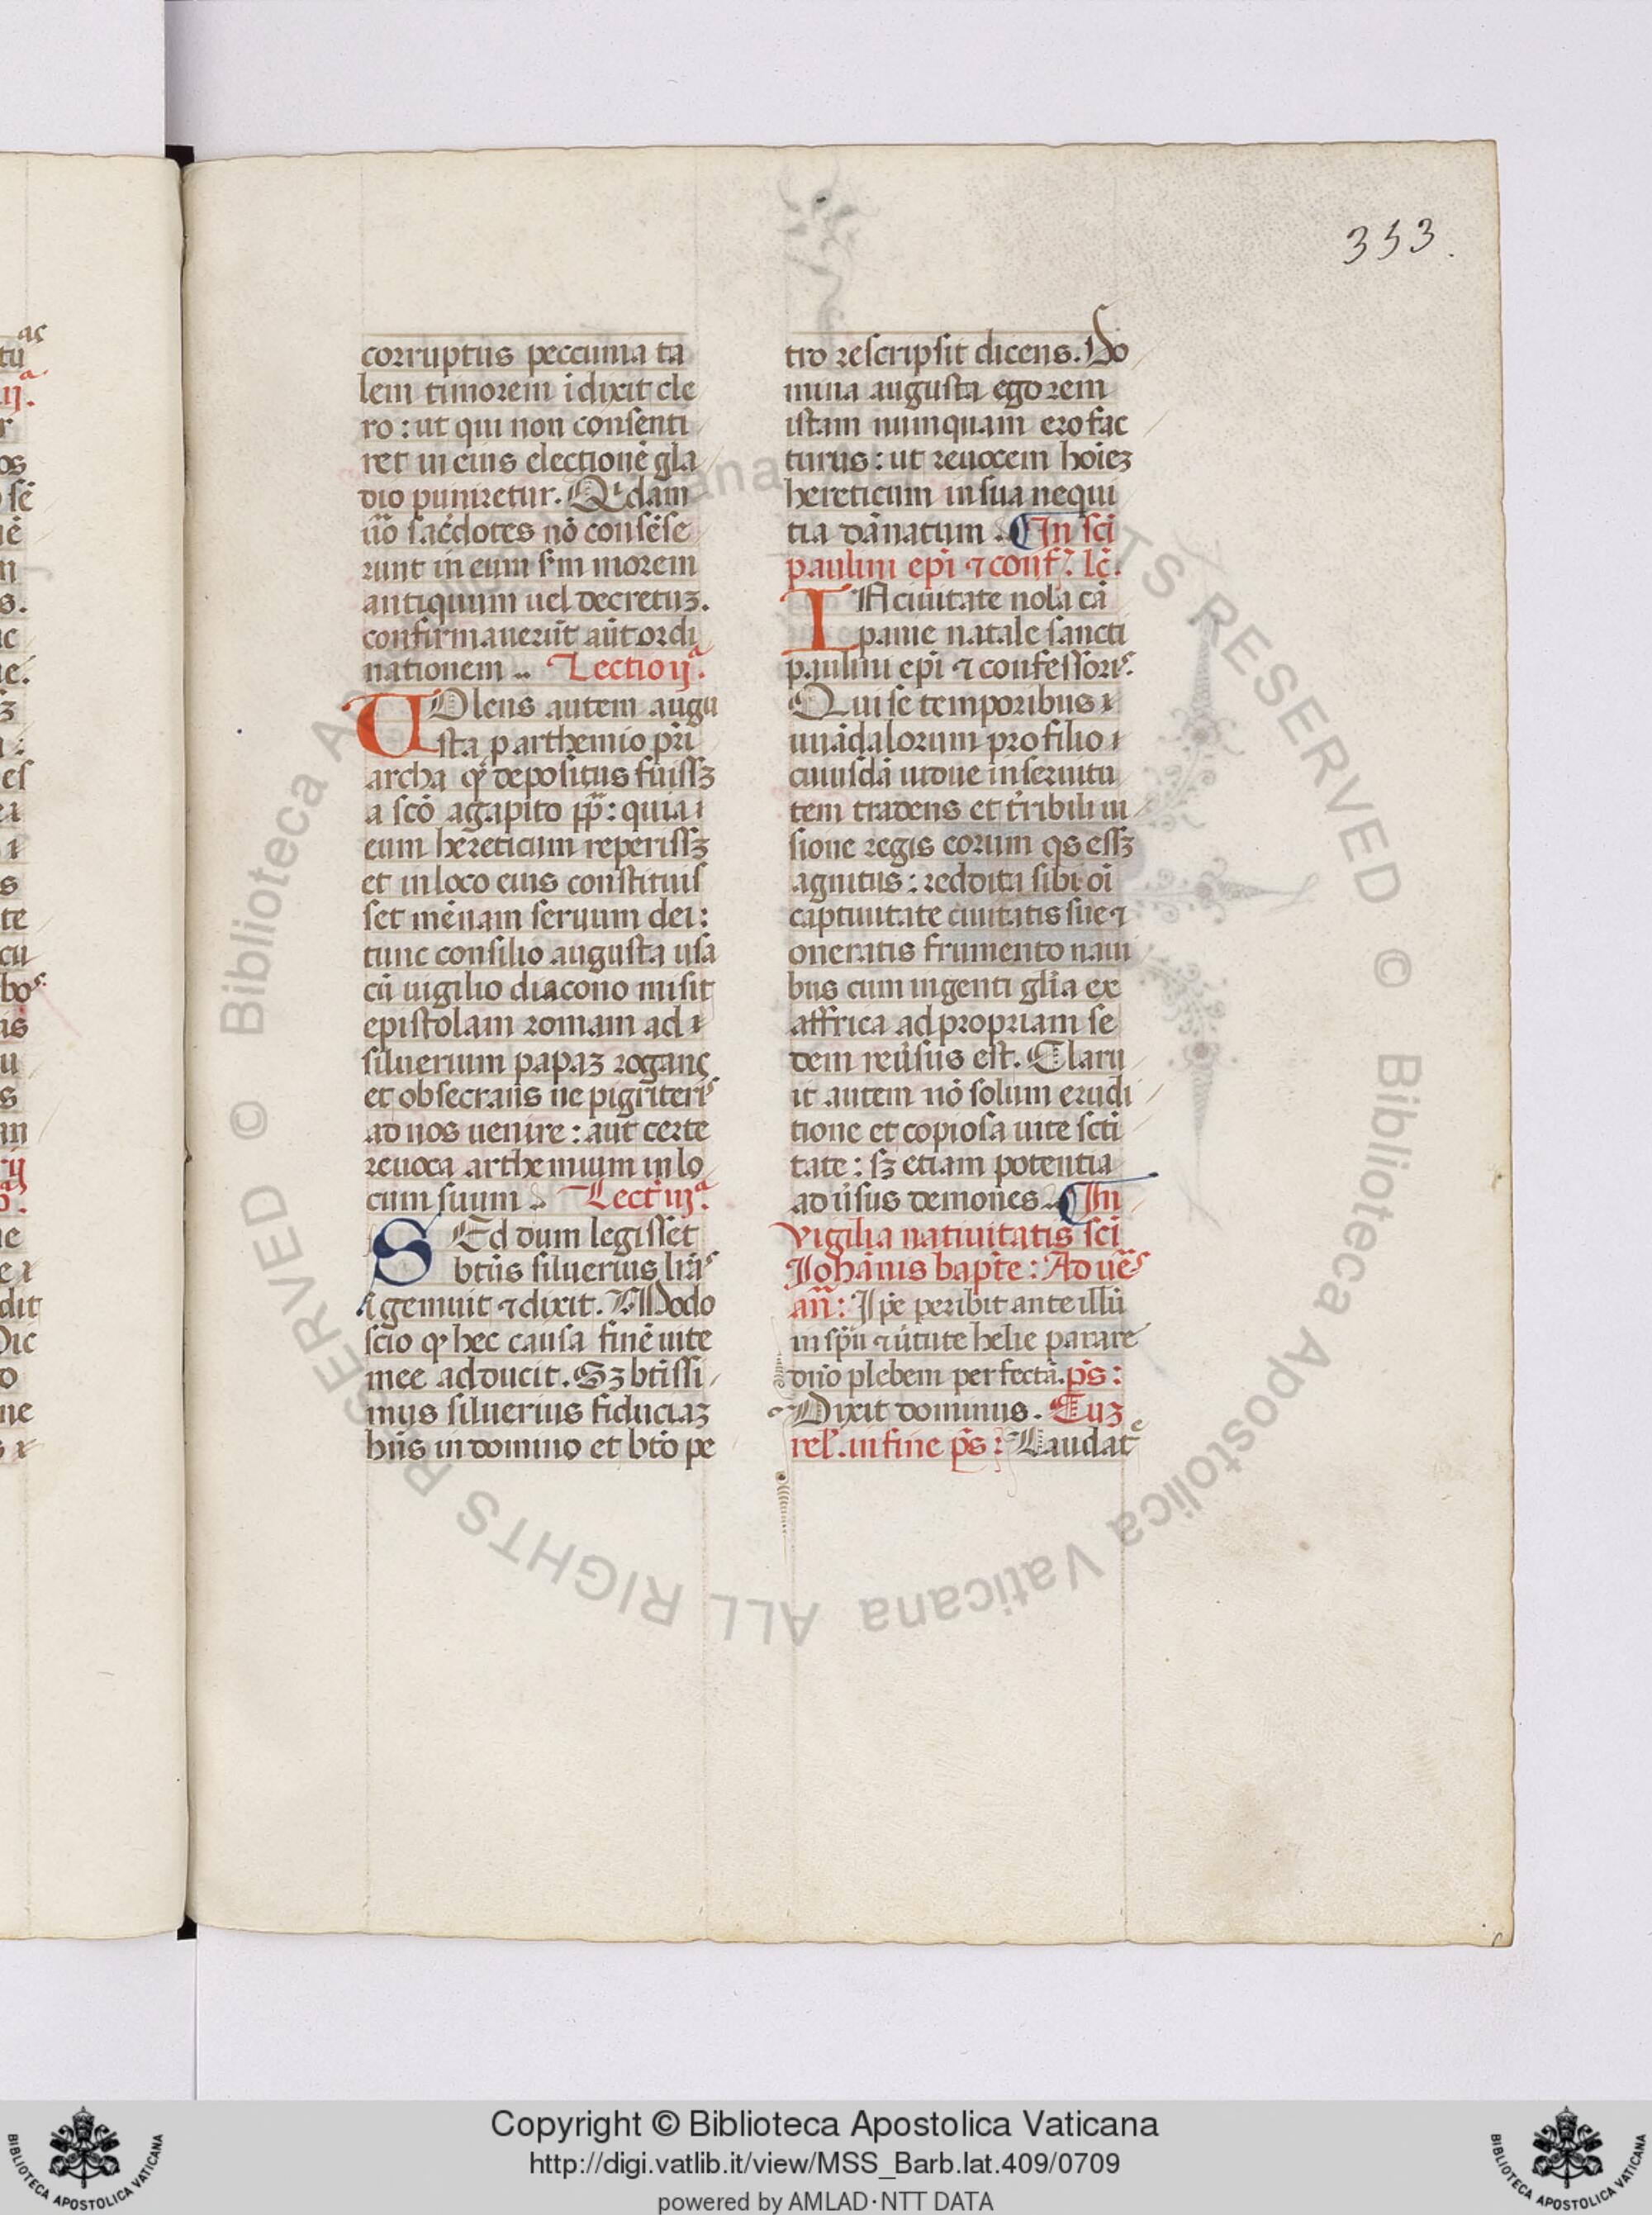 353.
corruptus peccunia ta
lem timorem īdixit cle
ro : ut qui non consenti
ret in eius electionē gla
dio puniretur. Qidam
ūo sac̄dotes nō consēse
runt in eum sm̄ morem
antiquum uel decretuȝ.
confirmauerūt aūt ordi
nationem .. Lectio ijª.
VOlens autem augu
sta parthemio pri
archa qꝫ depositus fuissȝ
a scō agapito pp̄ : quia
eum hereticum reperissȝ
et in loco eius constituis
set mēnam seruum dei :
tunc consilio augusta usa
cū uigilio diacono misit
epistolam romam ad
siluerium papaȝ rogans
et obsecrans ne pigriteris
ad nos uenire : aut certe
reuoca arthemium in lo
cum suum . Lect̄ iijª.
SEd dum legisset
bt̄us siluerius lrā̄s
īgemuit ⁊ dixit. Modo
scio qꝫ hec causa finē uite
mee adducit. Sȝ bt̄issi
mus siluerius fiduciaȝ
hn̄s in domino et bt̄o pe
tro rescripsit dicens. Do
mina augusta ego rem
istam nunquam ero fac
turus : ut reuocem hoīeȝ
hereticum in sua nequi
tia dānatum . In scī
paulini epī ⁊ conf̄. lc̄.
IN ciuitate nola cā
panie natale sancti
paulini epī ⁊ confessoris.
Qui se temporibus
uuādalorum pro filio
cuiusdā uidue in seruitu
tem tradens et t̄ribili ui
sione regis eorum qs essȝ
agnitus : reddita sibi oī
captiuitate ciuitatis sue ⁊
oneratis frumento naui
bus cum ingenti glīa ex
affrica ad propriam se
dem reūsus est. Claru
it autem nō solum erudi
tione et copiosa uite scti
tate : sȝ etiam potentia
adūsus demones . In
vigilia natiuitatis scī
Johānis bapt̄e : Ad ue᷑s
an̄ : Ipe peribit ante illū
in spū ⁊ ūtute helie parare
dn̄o plebem perfectā. ps̄ :
Dixit dominus. Cuȝ
rel̄. in fine ps̄ : Laudate
Copyright © Biblioteca Apostolica Vaticana
http://digi.vatlib.it/view/MSS_Barb.lat.409/0709
powered by AMLAD·NTT DATA
BIBLIOTECA APOSTOLICA VATICANA
BIBLIOTECA APOSTOLICA VATICANA
© Biblioteca Apostolica Vaticana ALL RIGHTS RESERVED
© Biblioteca Apostolica Vaticana ALL RIGHTS RESERVED